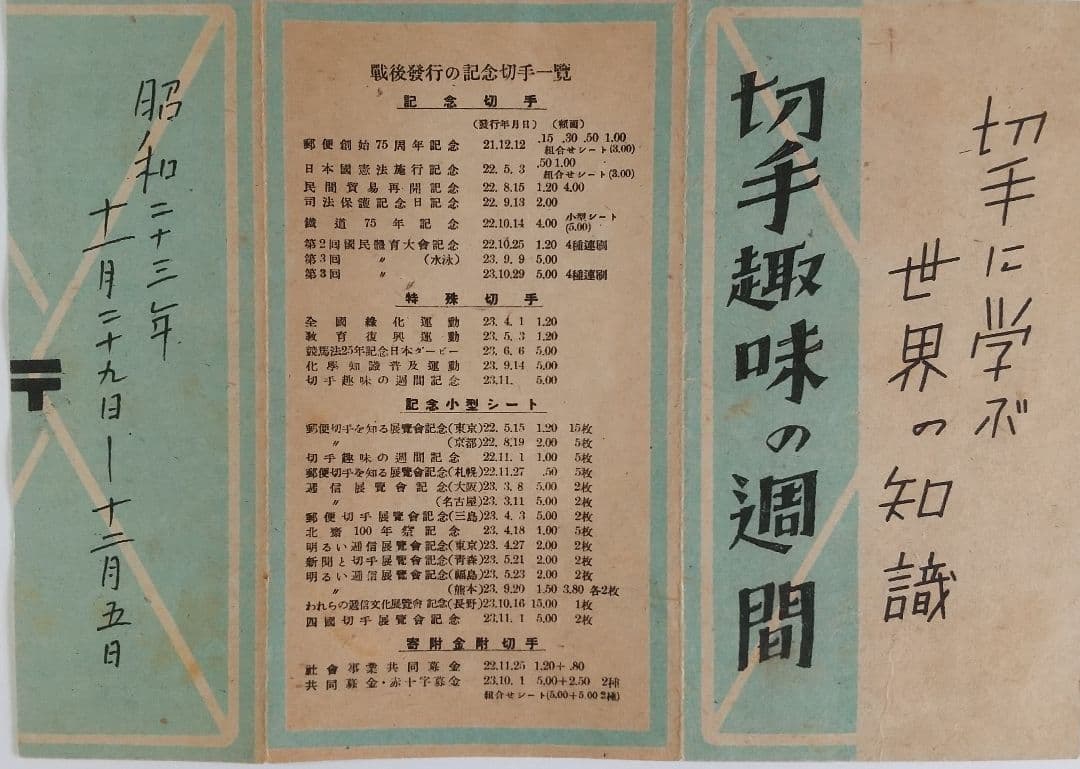 切手に学ぶ
世界の知識
切手趣味の週間
戰後發行の記念切手一覽
記念切手
(發行年月日) (額面)
郵便創始75周年記念 21.12.12 .15 .30 .50 1.00
組合せシート(3.00)
日本國憲法施行記念 22. 5. 3 .50 1.00
組合せシート(3.00)
民間貿易再開記念 22. 8.15 1.20 4.00
司法保護記念日記念 22. 9.13 2.00
鐵道75年記念 22.10.14 4.00 小型シート
(5.00)
第2回國民體育大會記念 22.10.25 1.20 4種連刷
第3回 〃 (水泳) 23. 9. 9 5.00
第3回 〃 23.10.29 5.00 4種連刷
特殊切手
全國綠化運動 23. 4. 1 1.20
教育復興運動 23. 5. 3 1.20
競馬法25年記念日本ダービー 23. 6. 6 5.00
化學知識普及運動 23. 9.14 5.00
切手趣味の週間記念 23.11. 5.00
記念小型シート
郵便切手を知る展覽會記念(東京) 22. 5.15 1.20 15枚
〃 (京都) 22. 8.19 2.00 5枚
切手趣味の週間記念 22.11. 1 1.00 5枚
郵便切手を知る展覽會記念(札幌) 22.11.27 .50 5枚
遞信展覽會記念(大阪) 23. 3. 8 5.00 2枚
〃 (名古屋) 23. 3.11 5.00 2枚
郵便切手展覽會記念(三島) 23. 4. 3 5.00 2枚
北齋100年祭記念 23. 4.18 1.00 5枚
明るい遞信展覽會記念(東京) 23. 4.27 2.00 2枚
新聞と切手展覽會記念(靑森) 23. 5.21 2.00 2枚
明るい遞信展覽會記念(福島) 23. 5.23 2.00 2枚
〃 (熊本) 23. 9.20 1.50 3.80 各2枚
われらの遞信文化展覽會記念(長野) 23.10.16 15.00 1枚
四國切手展覽會記念 23.11. 1 5.00 2枚
寄附金附切手
社會事業共同募金 22.11.25 1.20+ .80
共同募金・赤十字募金 23.10. 1 5.00+2.50 2種
組合せシート(5.00+5.00 2種)
昭和二十三年
十一月二十九日—十二月五日
〒